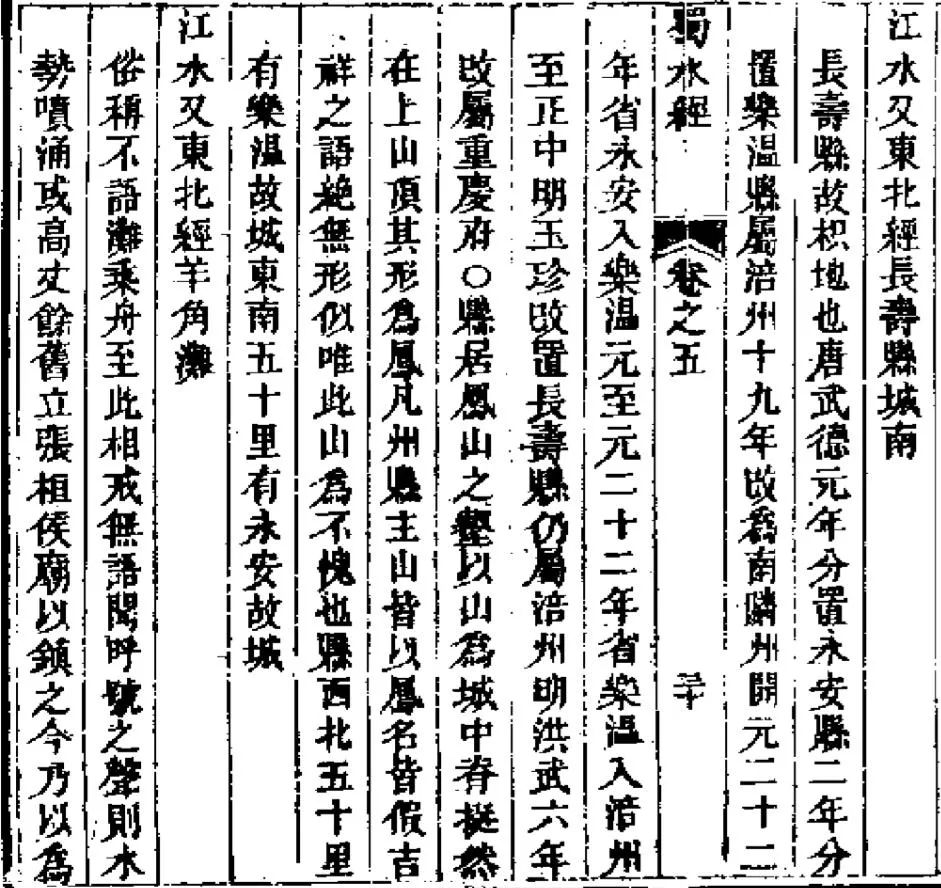 江水又東北經長壽縣城南
長壽縣故枳地也唐武德元年分置永安縣二年分
置樂溫縣屬涪州十九年改為南隣州開元二十二
蜀水經 卷之五 三十
年省永安入樂溫元至元二十二年省樂溫入涪州
至正中明玉珍改置長壽縣仍屬涪州明洪武六年
改屬重慶府○縣居鳳山之壑以山為城中脊挺然
在上山頂其形為鳳凡州縣主山皆以鳳名皆假吉
祥之語絶無形似唯此山為不愧也縣西北五十里
有樂溫故城東南五十里有永安故城
江水又東北經羊角灘
俗稱不語灘乘舟至此相戒無語聞呼號之聲則水
勢噴涌或高丈餘舊立張桓侯廟以鎮之今乃以為